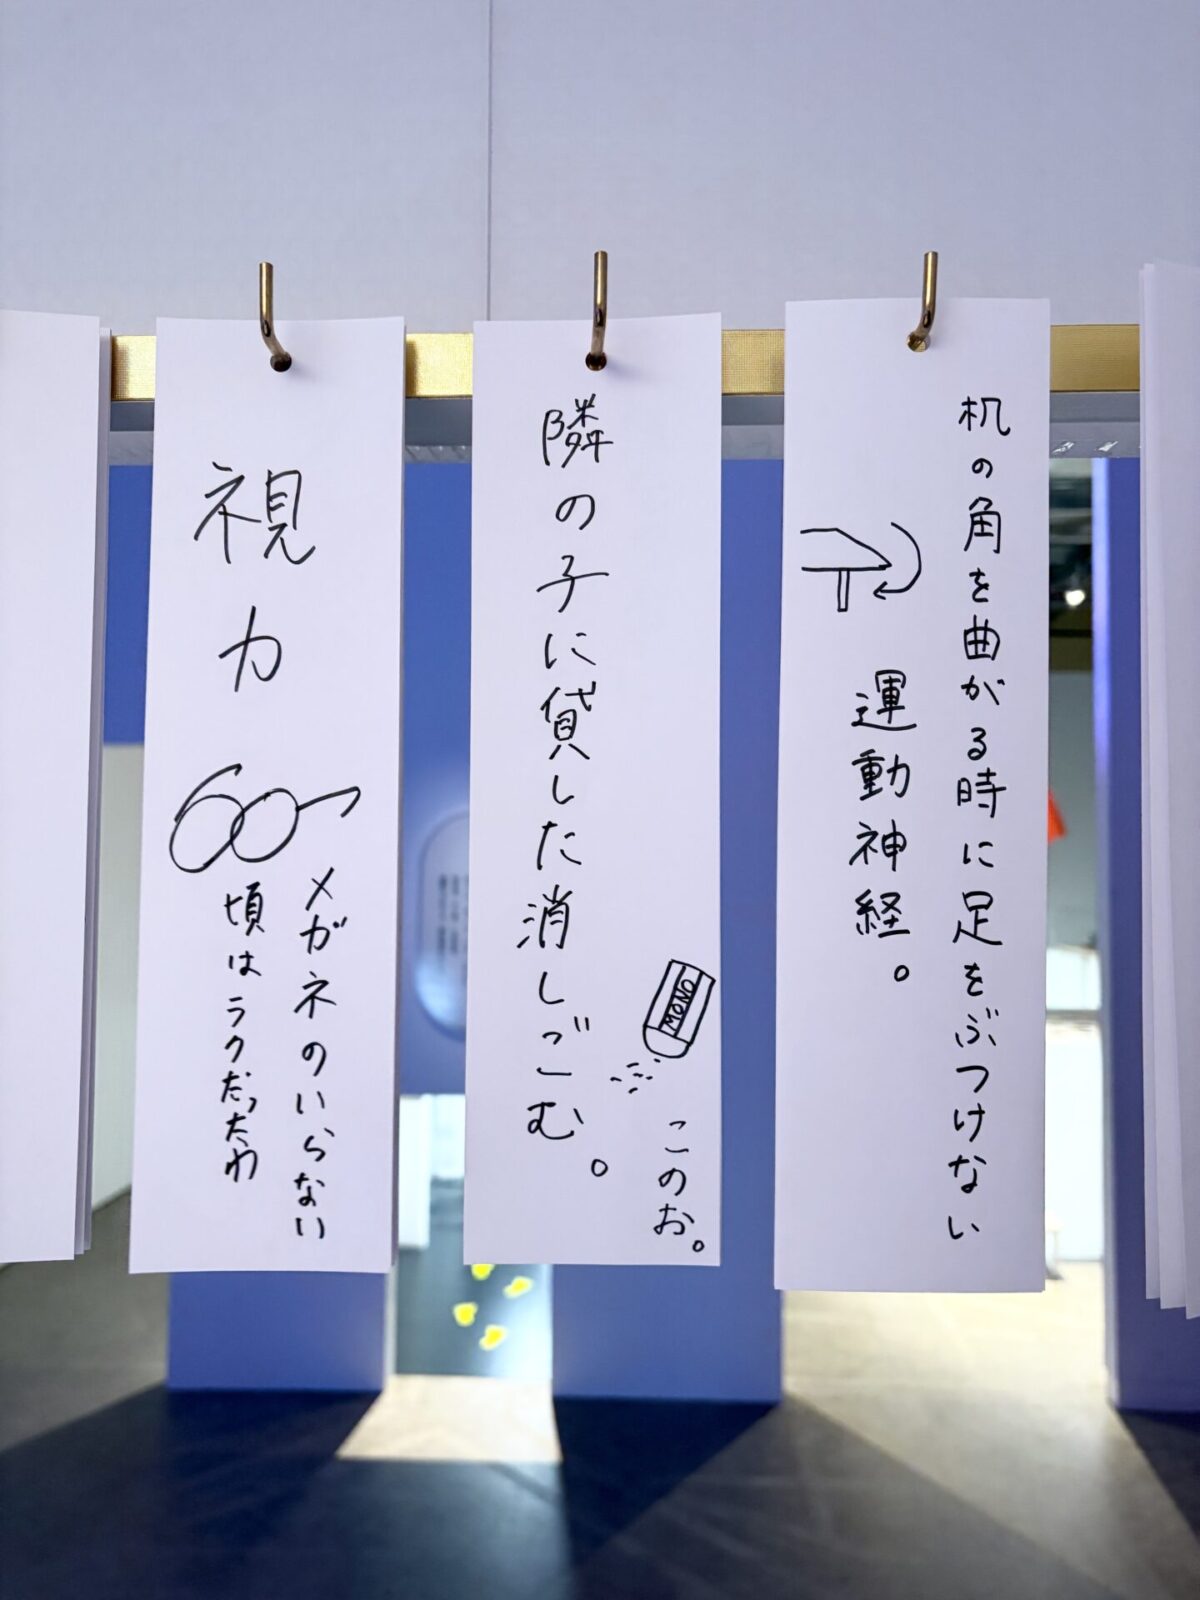 視力
メガネのいらない
頃はラクだったわ
隣の子に貸した消しごむ。
MONO
このお。
机の角を曲がる時に足をぶつけない
運動神経。